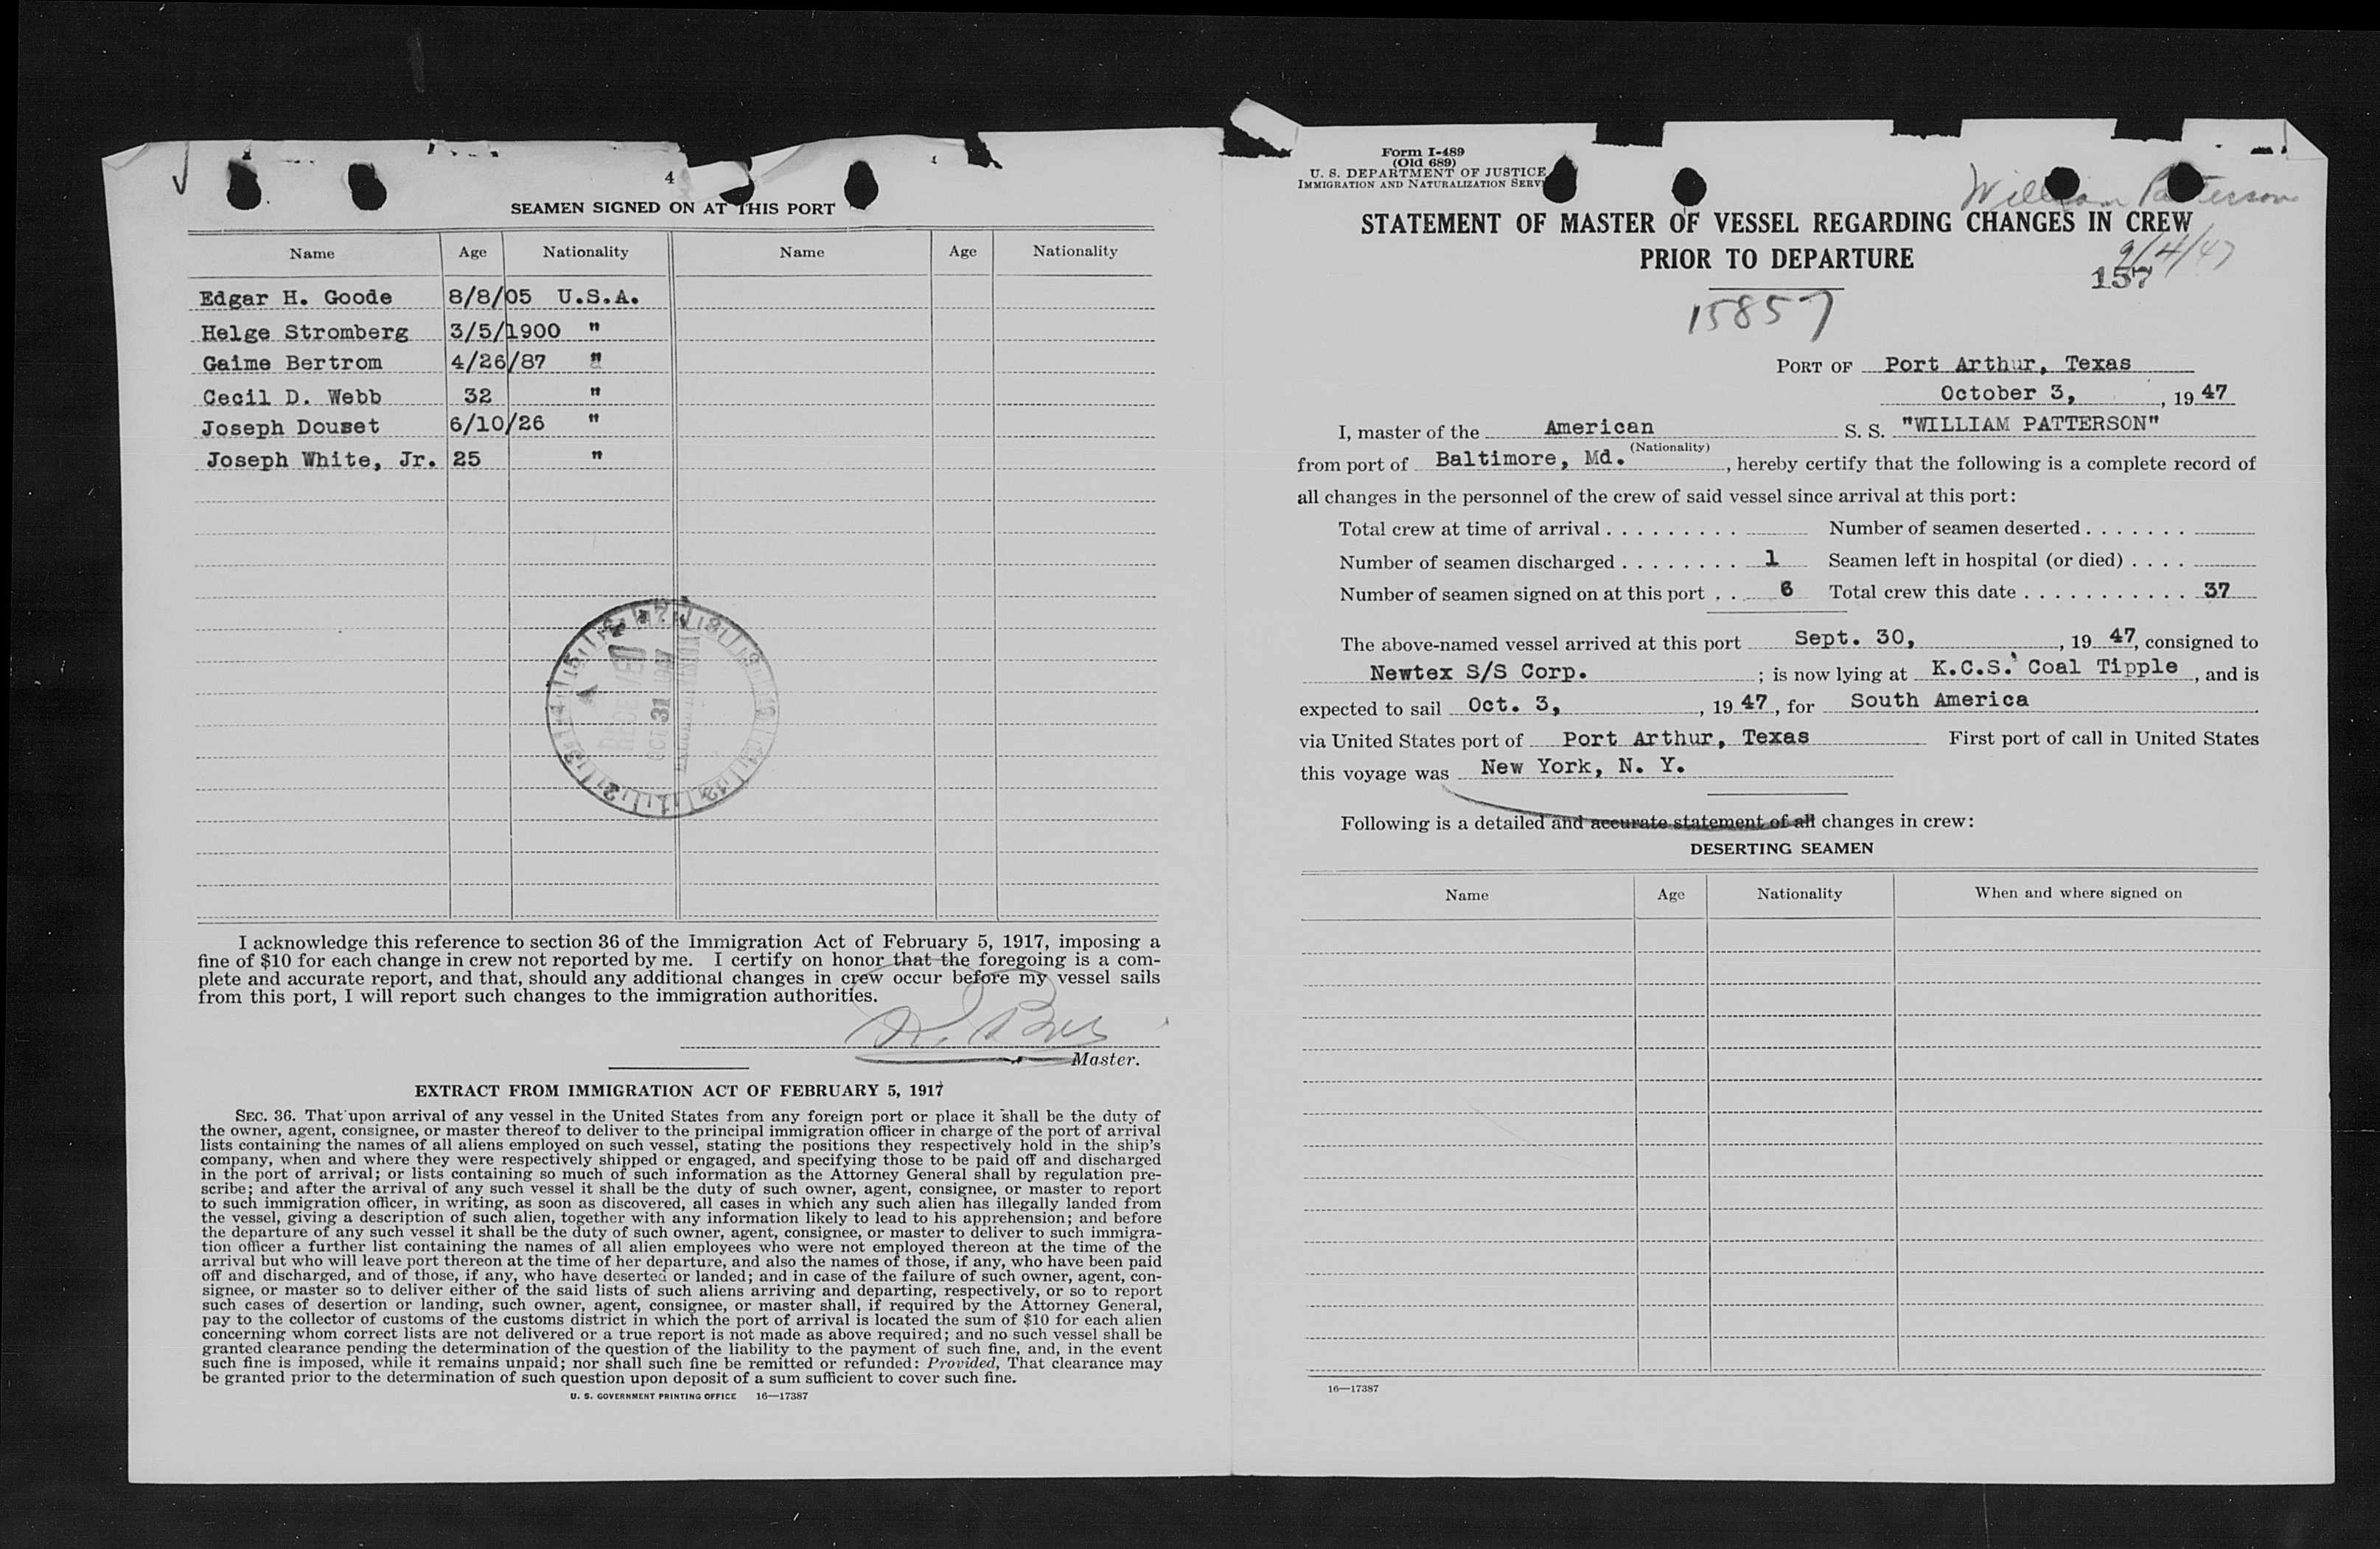 4
SEAMEN SIGNED ON AT THIS PORT
Name Age Nationality Name Age Nationality
Edgar H. Goode 8/8/05 U.S.A.
Helge Stromberg 3/5/1900 "
Gaime Bertrom 4/26/87 "
Cecil D. Webb 32 "
Joseph Douset 6/10/26 "
Joseph White, Jr. 25 "
RECEIVED
OCT 31 1947
I acknowledge this reference to section 36 of the Immigration Act of February 5, 1917, imposing a
fine of $10 for each change in crew not reported by me. I certify on honor that the foregoing is a com-
plete and accurate report, and that, should any additional changes in crew occur before my vessel sails
from this port, I will report such changes to the immigration authorities.
Master.
EXTRACT FROM IMMIGRATION ACT OF FEBRUARY 5, 1917
SEC. 36. That upon arrival of any vessel in the United States from any foreign port or place it shall be the duty of
the owner, agent, consignee, or master thereof to deliver to the principal immigration officer in charge of the port of arrival
lists containing the names of all aliens employed on such vessel, stating the positions they respectively hold in the ship's
company, when and where they were respectively shipped or engaged, and specifying those to be paid off and discharged
in the port of arrival; or lists containing so much of such information as the Attorney General shall by regulation pre-
scribe; and after the arrival of any such vessel it shall be the duty of such owner, agent, consignee, or master to report
to such immigration officer, in writing, as soon as discovered, all cases in which any such alien has illegally landed from
the vessel, giving a description of such alien, together with any information likely to lead to his apprehension; and before
the departure of any such vessel it shall be the duty of such owner, agent, consignee, or master to deliver to such immigra-
tion officer a further list containing the names of all alien employees who were not employed thereon at the time of the
arrival but who will leave port thereon at the time of her departure, and also the names of those, if any, who have been paid
off and discharged, and of those, if any, who have deserted or landed; and in case of the failure of such owner, agent, con-
signee, or master so to deliver either of the said lists of such aliens arriving and departing, respectively, or so to report
such cases of desertion or landing, such owner, agent, consignee, or master shall, if required by the Attorney General,
pay to the collector of customs of the customs district in which the port of arrival is located the sum of $10 for each alien
concerning whom correct lists are not delivered or a true report is not made as above required; and no such vessel shall be
granted clearance pending the determination of the question of the liability to the payment of such fine, and, in the event
such fine is imposed, while it remains unpaid; nor shall such fine be remitted or refunded: Provided, That clearance may
be granted prior to the determination of such question upon deposit of a sum sufficient to cover such fine.
U. S. GOVERNMENT PRINTING OFFICE 16—17387
Form I-489
(Old 689)
U. S. DEPARTMENT OF JUSTICE
IMMIGRATION AND NATURALIZATION SERV
William Patterson
STATEMENT OF MASTER OF VESSEL REGARDING CHANGES IN CREW
PRIOR TO DEPARTURE
9/4/47
157
15857
PORT OF Port Arthur, Texas
October 3, , 19 47
I, master of the American S. S. "WILLIAM PATTERSON"
(Nationality)
from port of Baltimore, Md. , hereby certify that the following is a complete record of
all changes in the personnel of the crew of said vessel since arrival at this port:
Total crew at time of arrival . . . . . . . . . Number of seamen deserted . . . . . . .
Number of seamen discharged . . . . . . . . 1 Seamen left in hospital (or died) . . . .
Number of seamen signed on at this port . . 6 Total crew this date . . . . . . . . . . . 37
The above-named vessel arrived at this port Sept. 30, , 19 47, consigned to
Newtex S/S Corp. ; is now lying at K.C.S. Coal Tipple , and is
expected to sail Oct. 3, , 19 47 , for South America
via United States port of Port Arthur, Texas First port of call in United States
this voyage was New York, N. Y.
Following is a detailed and accurate statement of all changes in crew:
DESERTING SEAMEN
Name Age Nationality When and where signed on
16—17387